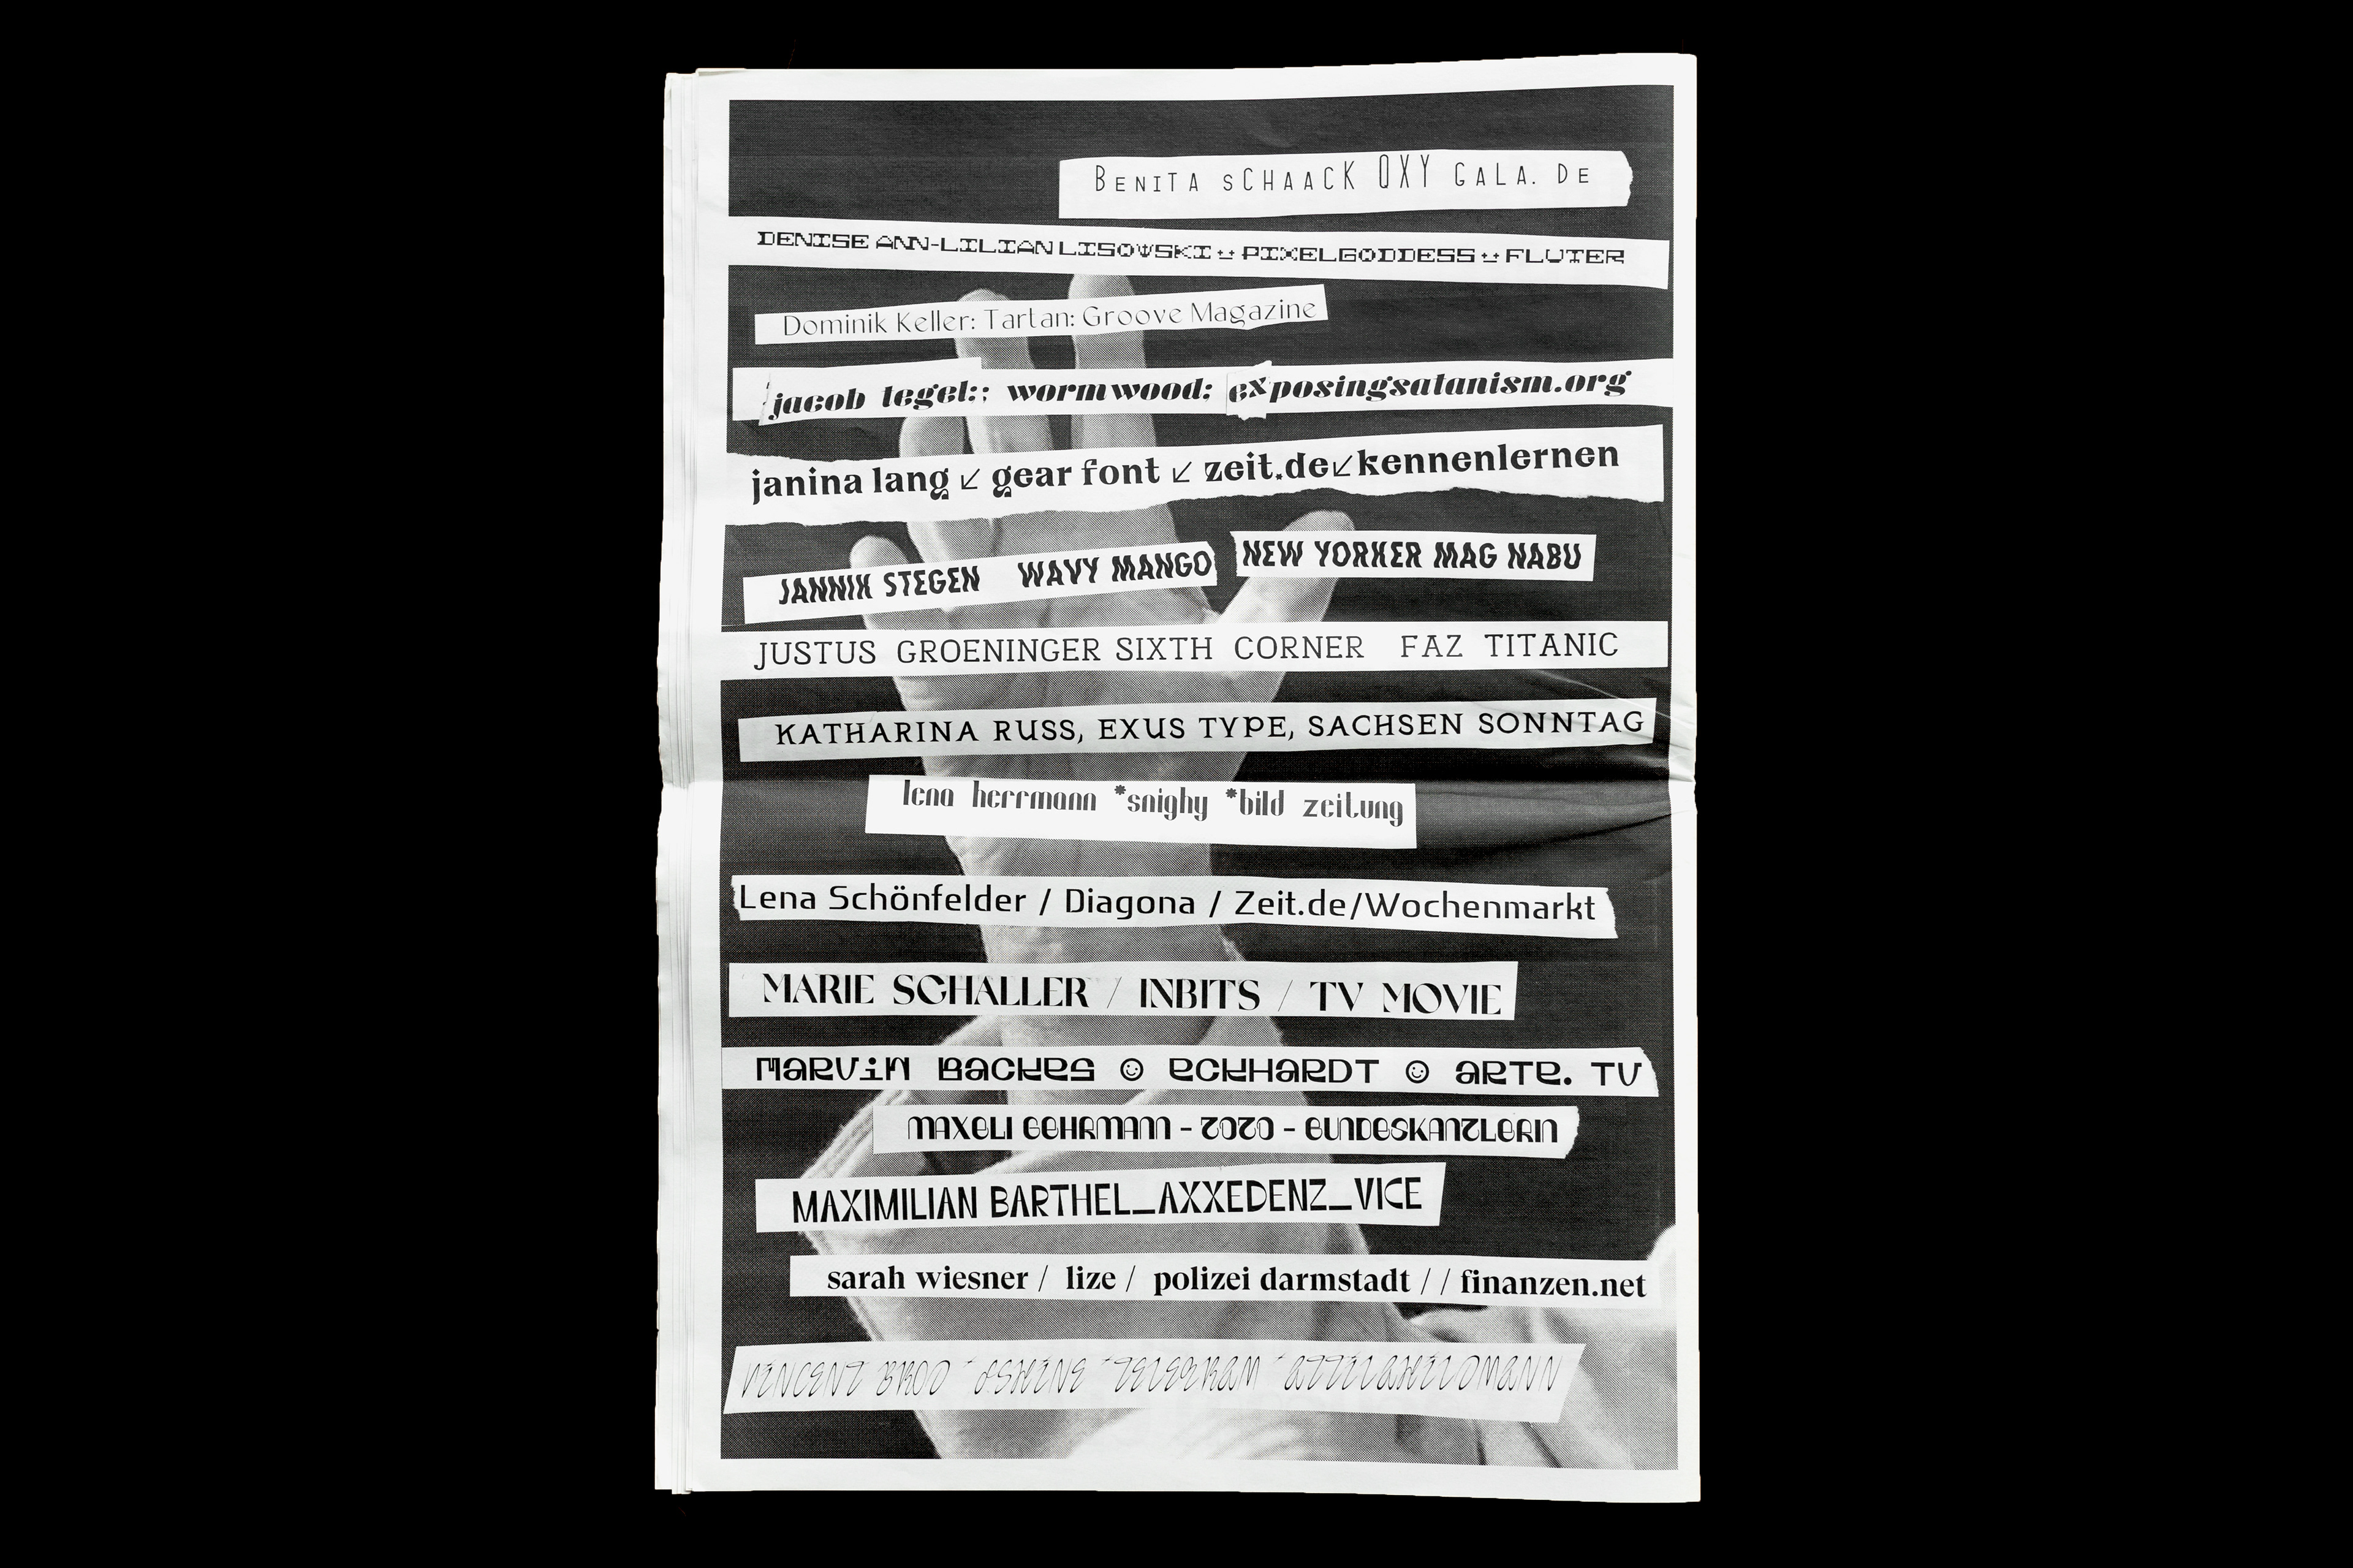 BENITA sCHAACK OXY GALA. DE
DENISE ANN-LILIAN LISOWSKI PIXELGODDESS FLUTER
Dominik Keller: Tartan: Groove Magazine
jacob tegel:; wormwood: exposingsatanism.org
janina lang ↙ gear font ↙ zeit.de↙kennenlernen
JANNIK STEGEN WAVY MANGO NEW YORKER MAG NABU
JUSTUS GROENINGER SIXTH CORNER FAZ TITANIC
KATHARINA RUSS, EXUS TYPE, SACHSEN SONNTAG
lena herrmann *snighy *bild zeitung
Lena Schönfelder / Diagona / Zeit.de/Wochenmarkt
MARIE SCHALLER / INBITS / TV MOVIE
MaRViN BaCHeS ☺ eCKHaRDT ☺ aRTe. TV
MAXeLI GeHRMANN - 2020 - BUNDeSKANZLeRIN
MAXIMILIAN BARTHEL_AXXEDENZ_VICE
sarah wiesner / lize / polizei darmstadt / / finanzen.net
VINCENT BROD TELEGRAM ATTILAHILDMANN